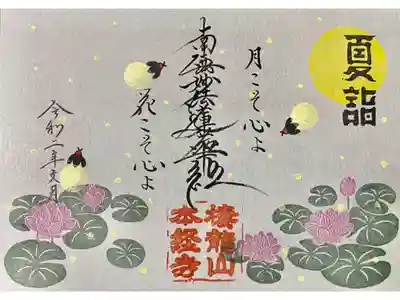 夏詣
月こそ心よ
南無妙法蓮華経
花こそ心よ
令和二年文月
棲龍山
本經寺